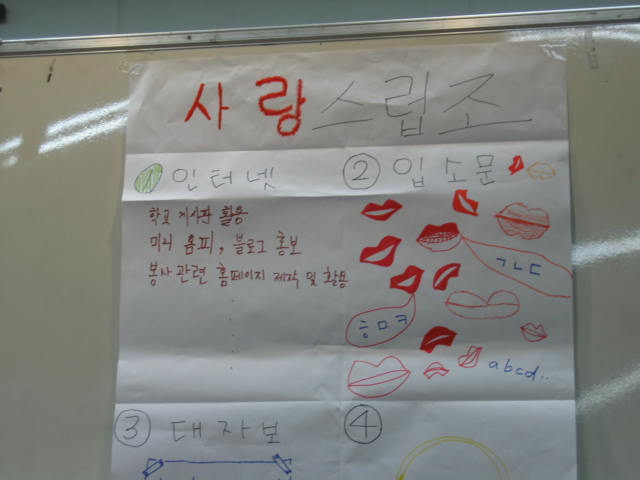 사랑스럽조
① 인터넷
학교 게시판 활용
미니 홈피, 블로그 홍보
봉사 관련 홈페이지 제작 및 활용
② 입소문
ㄱㄴㄷ
ㅎㅁㅋ
abcd..
③ 대자보
④